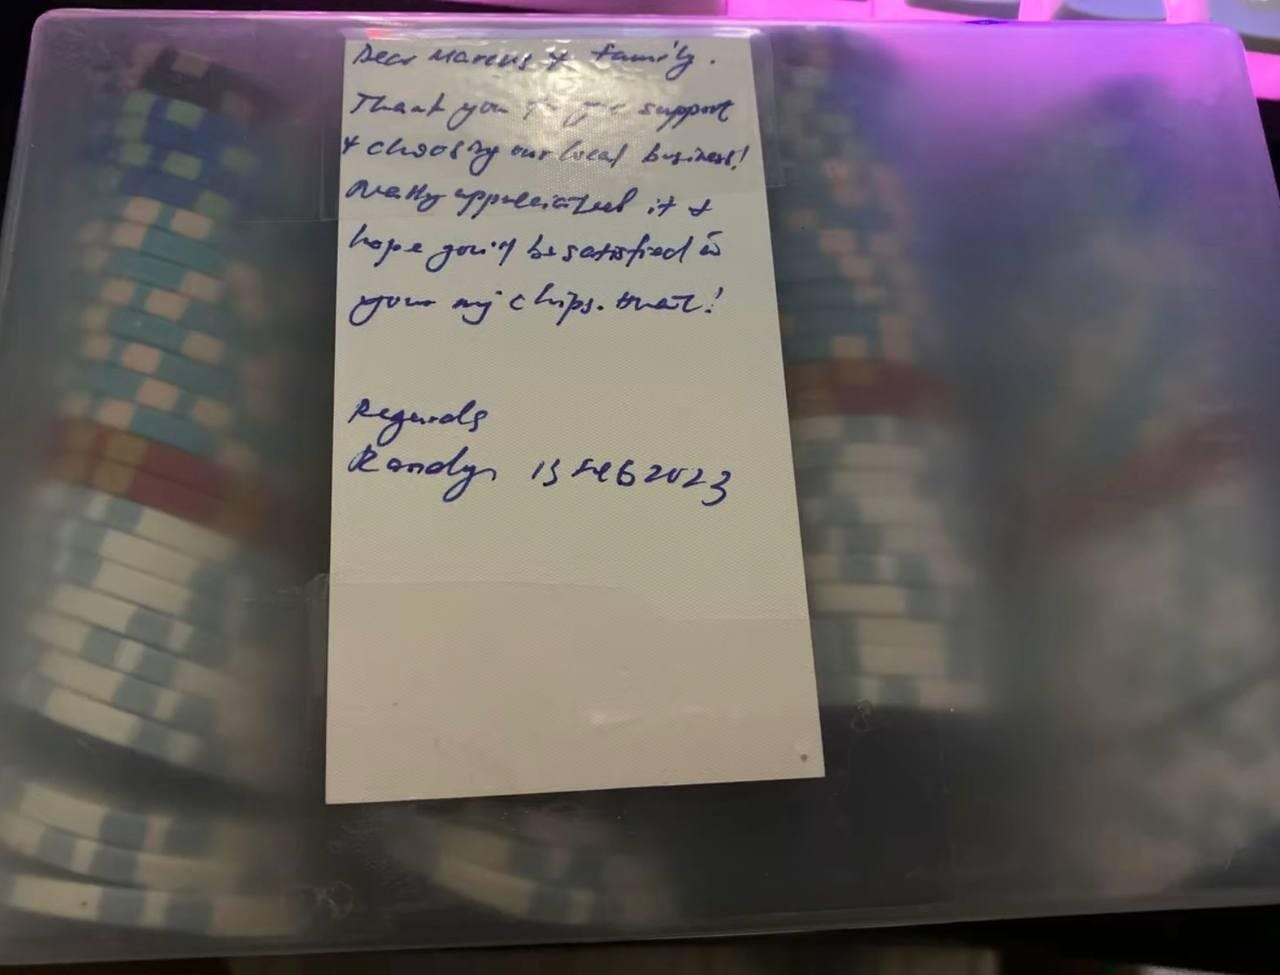 Dear Marcus & family.
Thank you for your support
& choosing our local business!
Really appreciated it &
hope you'll be satisfied
your mj chips.
Regards
Randy 15 Feb 2023